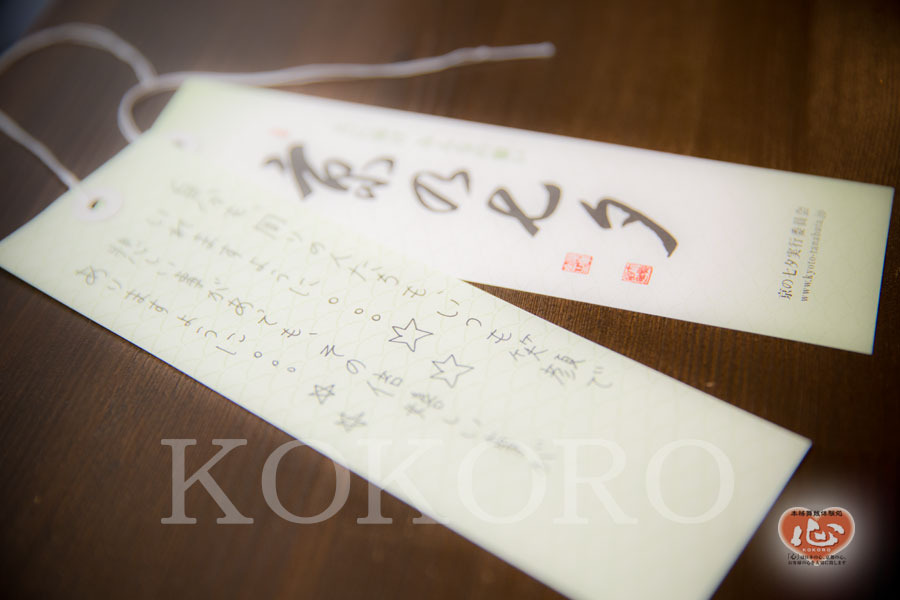 京の七夕
京の七夕実行委員会
www.kyoto-tanabata.jp
周りの人たちも いつも笑顔で
いれますように。。。☆☆
悲しい事があっても、その倍 嬉しい事が
ありますように。。。☆☆
KOKORO
本格舞妓体験処
心
KOKORO